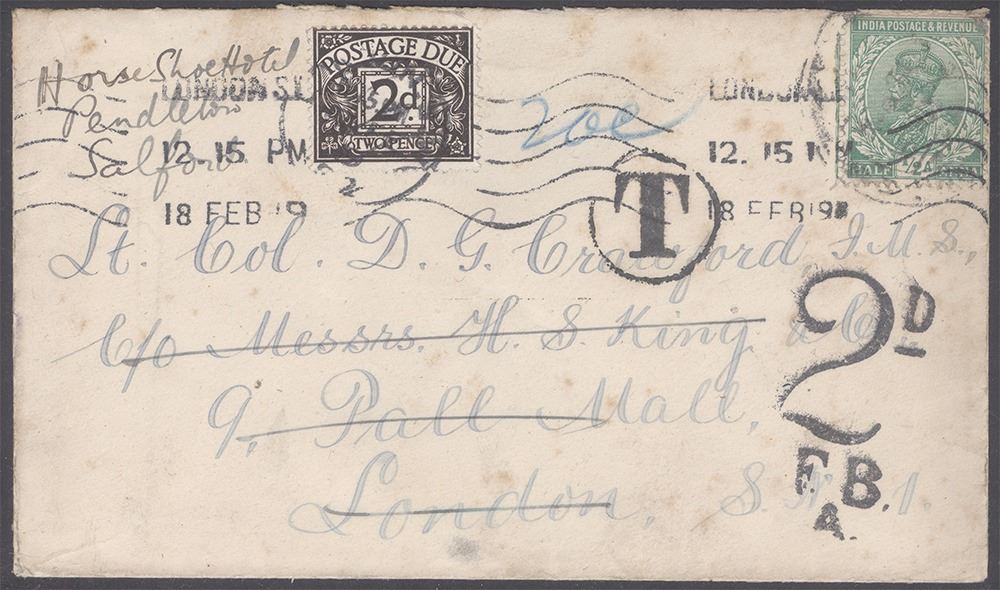 Horse Shoe Hotel
Pendleton
Salford
POSTAGE DUE
2d
TWO PENCE
LONDON S.
12. 15 PM
18 FEB 19
20c
INDIA POSTAGE & REVENUE
HALF
LONDON
12. 15 PM
18 FEB 19
T
Lt. Col. D. G. Crawford I.M.S.,
C/o Messrs. H. S. King & Co
9, Pall Mall,
London, S.W. 1.
2D
F.B.
A.